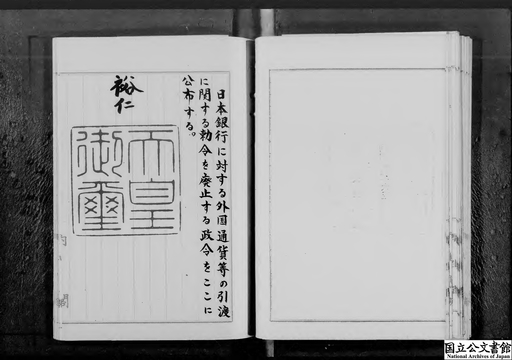 日本銀行に対する外国通貨等の引渡
に関する勅令を廃止する政令をここに
公布する。
裕仁
天皇
御璽
国立公文書館
National Archives of Japan